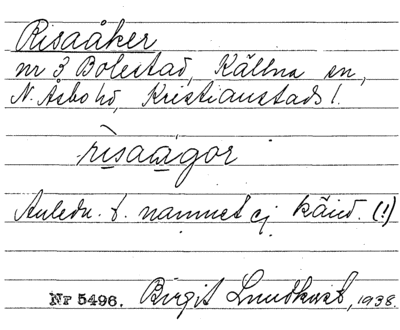 Risaåker
nr 3 Bolestad, Källna sn,
N. Åsbo hd, Kristianstads l.
rìsaágor
Anledn. t. namnet ej känd. (!)
Nr 5496. Birgit Lundkvist, 1938.